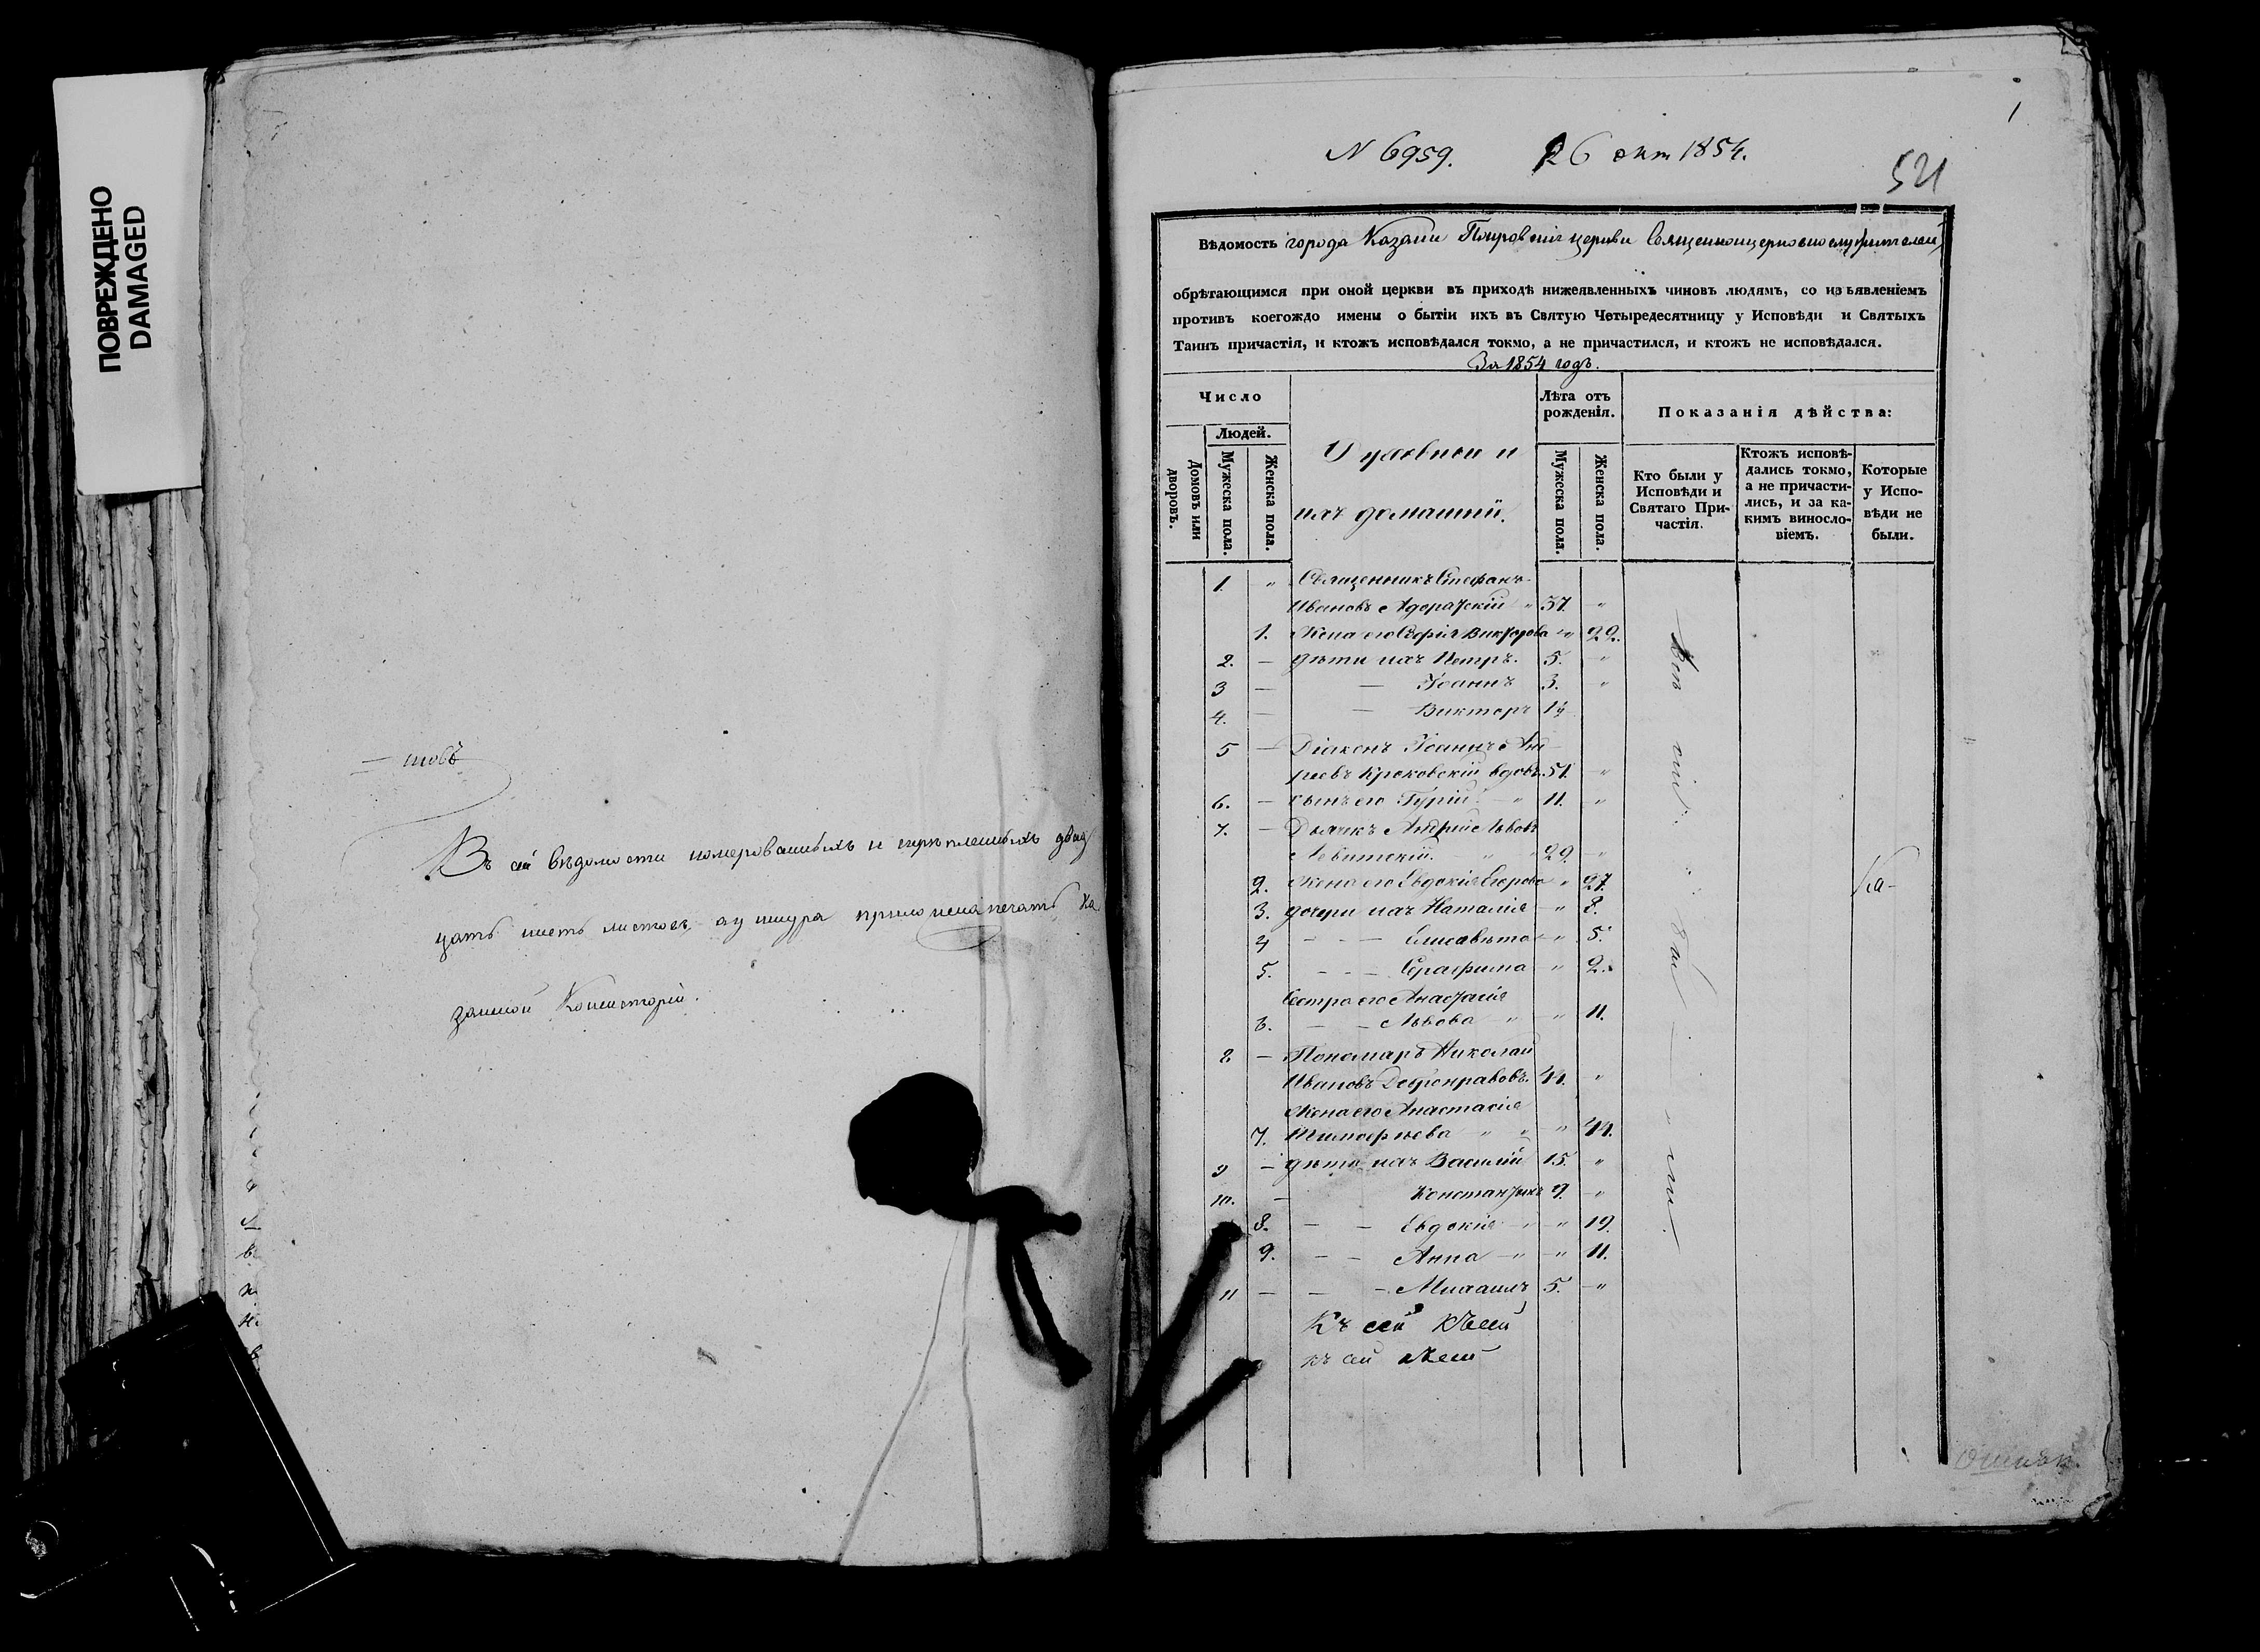 ПОВРЕЖДЕНО
DAMAGED
Въ сей вѣдомости номерованныхъ и скрѣпленныхъ двад
цать шесть листовъ, а у шнура приложена печать Ка
занской Консисторіи.
1
N 6959. 26 окт 1854.
521
Вѣдомость города Казани Покровскія церкви Священноцерковнослужителей,
обрѣтающимся при оной церкви въ приходѣ нижеявленныхъ чиновъ людямъ, со изъявленіемъ
противъ коегождо имены о бытіи ихъ въ Святую Четыредесятницу у Исповѣди и Святыхъ
Таинъ причастія, и ктожъ исповѣдался токмо, а не причастился, и ктожъ не исповѣдался.
За 1854 годъ.
Число
Людей.
Домовъ или дворовъ.
Мужеска пола.
Женска пола.
Духовные и
ихъ домашніи.
Лѣта отъ рожденія.
Мужеска пола.
Женска пола.
Показанія дѣйства:
Кто были у Исповѣди и Святаго Причастія.
Ктожъ исповѣдались токмо, а не причастились, и за какимъ винословіемъ.
Которые у Исповѣди не были.
1. " Священникъ Стефанъ
Ивановъ Адоратскій " 37. "
1. Жена его Софія Викторова " 22.
2. — дѣти ихъ Петръ. 5. "
3 — — Іоаннъ 3. "
4. — — Викторъ 1½
5 — Діаконъ Іоаннъ Анд
реевъ Кроковскій вдовъ. 51. "
6. — сынъ его Гурій — " 11. "
7. — Дьячкъ Андрей Львовъ
Левитскій. " " 29. "
2. Жена его Евдокія Егорова " 27.
3. дочери ихъ Наталія — " 8.
4 — — Елисавета — " 5.
5. — — Серафима — " 2.
Сестра его Анастасія
6. — — Львова " — " 11.
8 — Пономарь Николай
Ивановъ Добронравовъ. 44. "
Жена его Анастасія
7. Тимофеева " " — " 44.
9 — дѣти ихъ Василій 15. "
10. — Константинъ 9. "
8. — — Евдокія — " 19.
9. — — Анна — " — " 11.
11 — — — Михаилъ 5. — "
Къ сей
къ сей